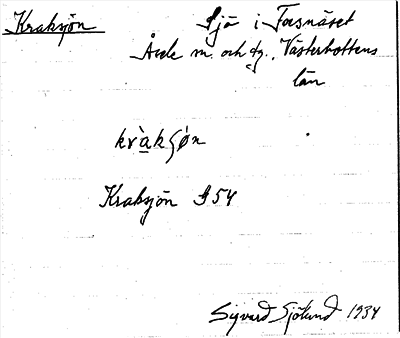 Kraksjön
Sjö i Forsnäset
Åsele sn. och tg., Västerbottens
län
kràkʃön
Kraksjön S54
Sigvard Sjölund 1934